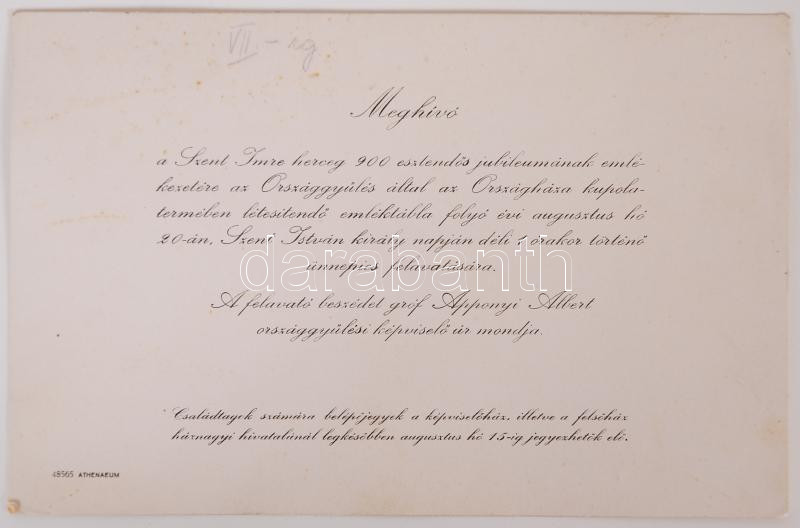 VII.-
Meghívó
a Szent Imre herceg 900 esztendős jubileumának emlé-
kezetére az Országgyűlés által az Országháza kupola-
termében létesitendő emléktábla folyó évi augusztus hó
20-án, Szent István király napján déli 1 órakor történő
ünnepies felavatására.
darabanth
A felavató beszédet gróf Apponyi Albert
országgyűlési képviselő úr mondja.
Családtagok számára belépőjegyek a képviselőház, illetve a felsőház
háznagyi hivatalánál legkésőbben augusztus hó 15-ig jegyezhetők elő.
48565 ATHENAEUM